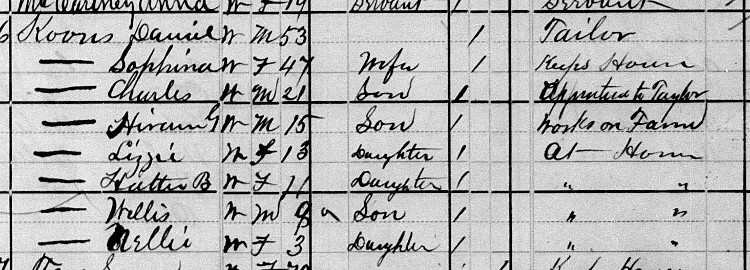 McCartney Anna W F 19 Servant Servant
6 Koons Daniel W M 53 / Tailor
— Sophina W F 47 Wife / Keeps House
— Charles W M 21 Son / Apprentice to Taylor
— Hiram G W M 15 Son / Works on Farm
— Lizzie W F 13 Daughter / At Home
— Hattie B W F 11 Daughter / " "
— Willis W M 8 Son / " "
— Nellie W F 3 Daughter / " "